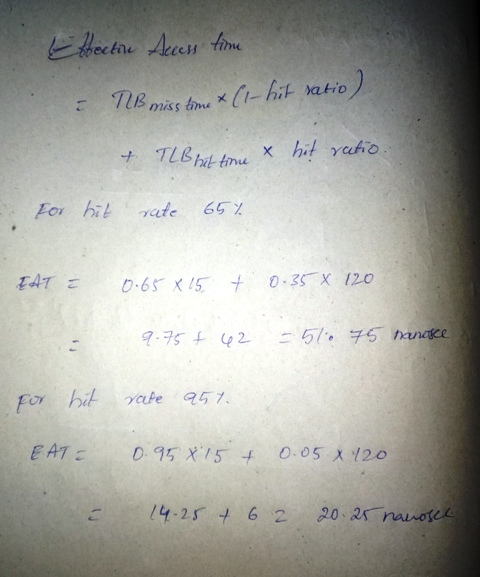 Effective Access time
= TLB miss time × (1 - hit ratio)
+ TLB hit time × hit ratio.
For hit rate 65%
EAT = 0.65 × 15 + 0.35 × 120
= 9.75 + 42 = 51.75 nanosec
For hit rate 95%.
EAT = 0.95 × 15 + 0.05 × 120
= 14.25 + 6 = 20.25 nanosec